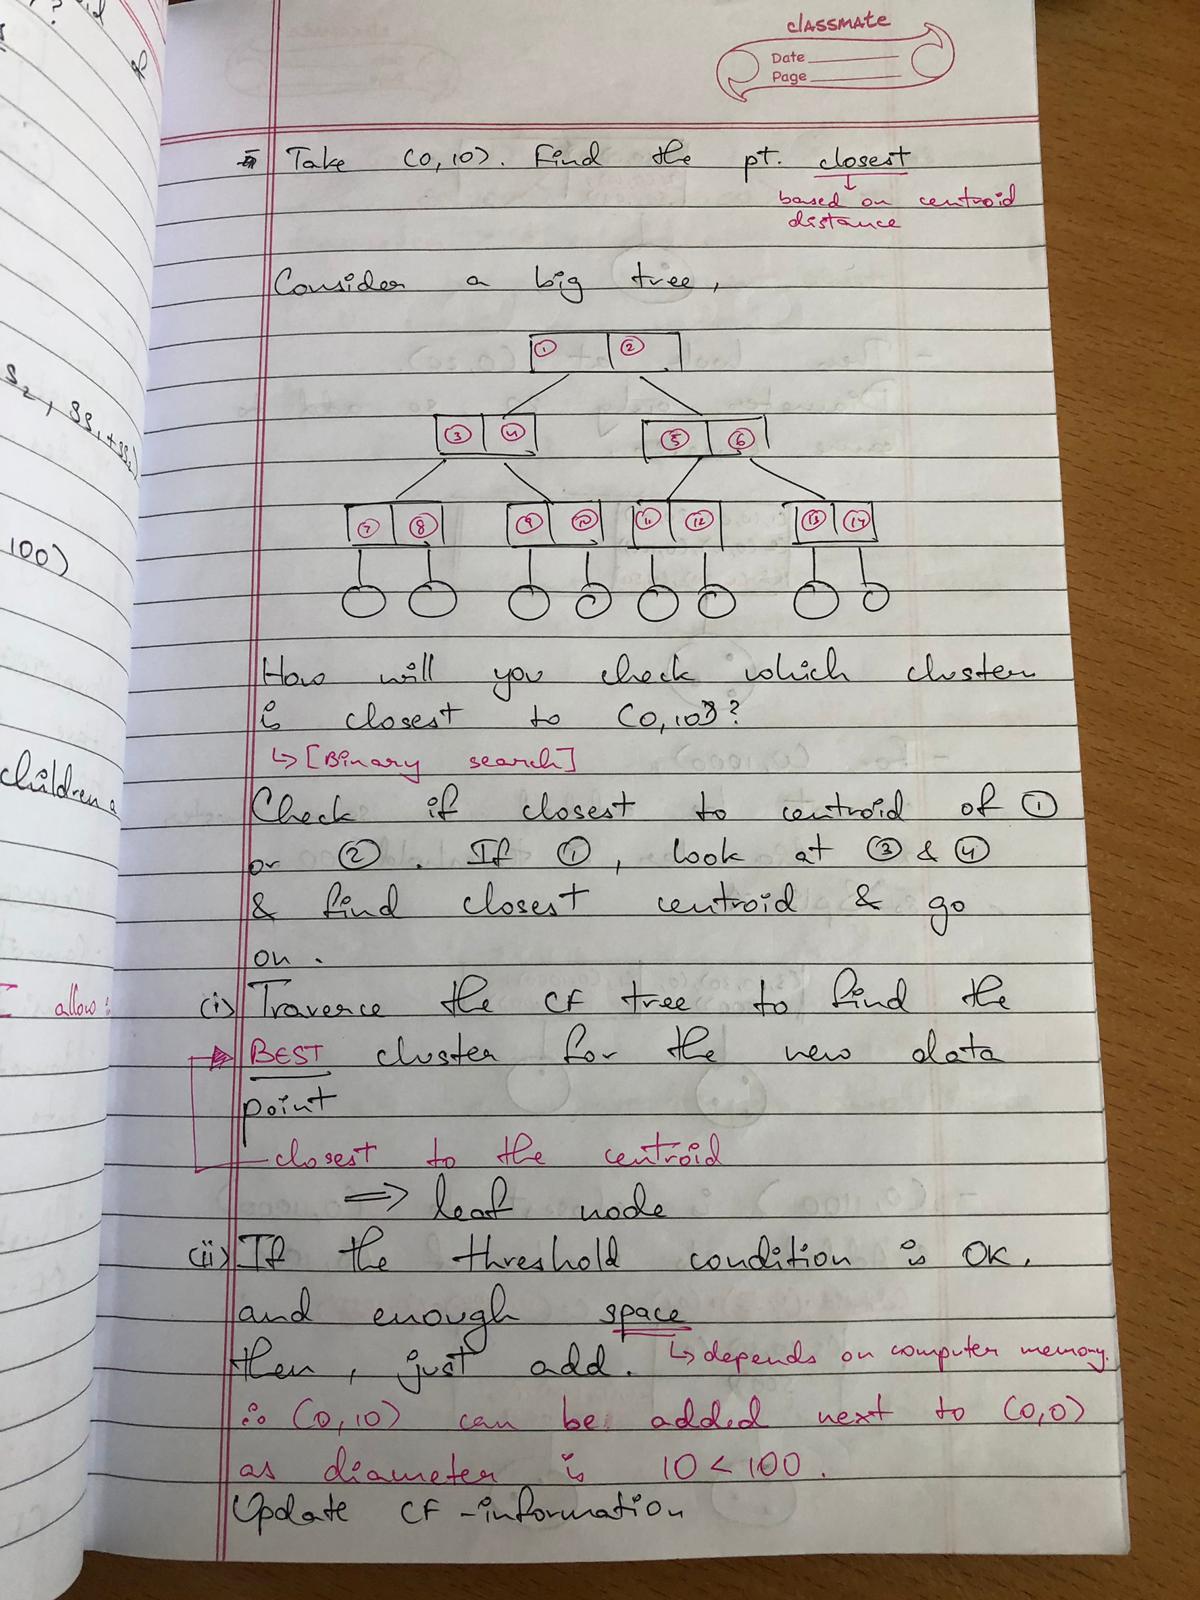 classmate
Date
Page
Take (0,10). Find the pt. closest
based on centroid
distance
Consider a big tree,
① ②
③ ④ ⑤ ⑥
⑦ ⑧ ⑨ ⑩ ⑪ ⑫ ⑬ ⑭
How will you check which cluster
is closest to (0,10)?
↳ [Binary search]
Check if closest to centroid of ①
or ②. If ①, look at ③ & ④
& find closest centroid & go
on.
(i) Traverse the CF tree to find the
BEST cluster for the new data
point
closest to the centroid
⇒ leaf node
(ii) If the threshold condition is OK,
and enough space
then, just add. ↳ depends on computer memory.
∴ (0,10) can be added next to (0,0)
as diameter is 10 < 100.
Update CF-information
S₂, SS₁+SS₂)
100)
children a
allow